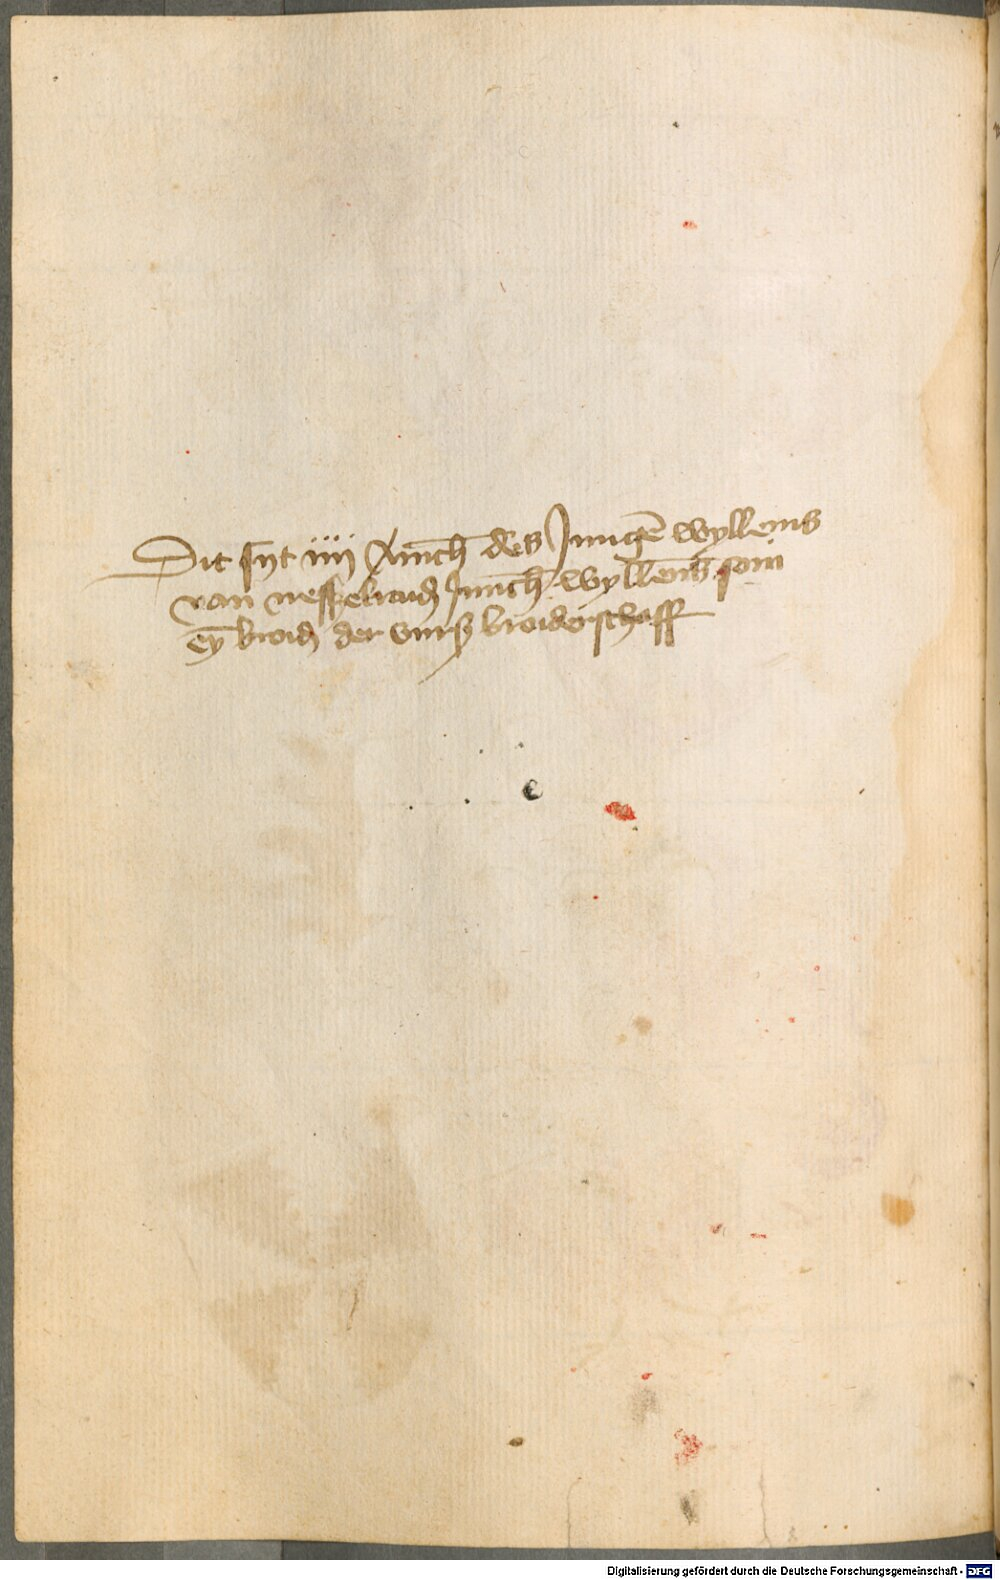 Dit synt iiij Anich des Jungē wyllems
van nesselraid Junch wyllems soin
ey broid der vurß broiderschaff
Digitalisierung gefördert durch die Deutsche Forschungsgemeinschaft - DFG